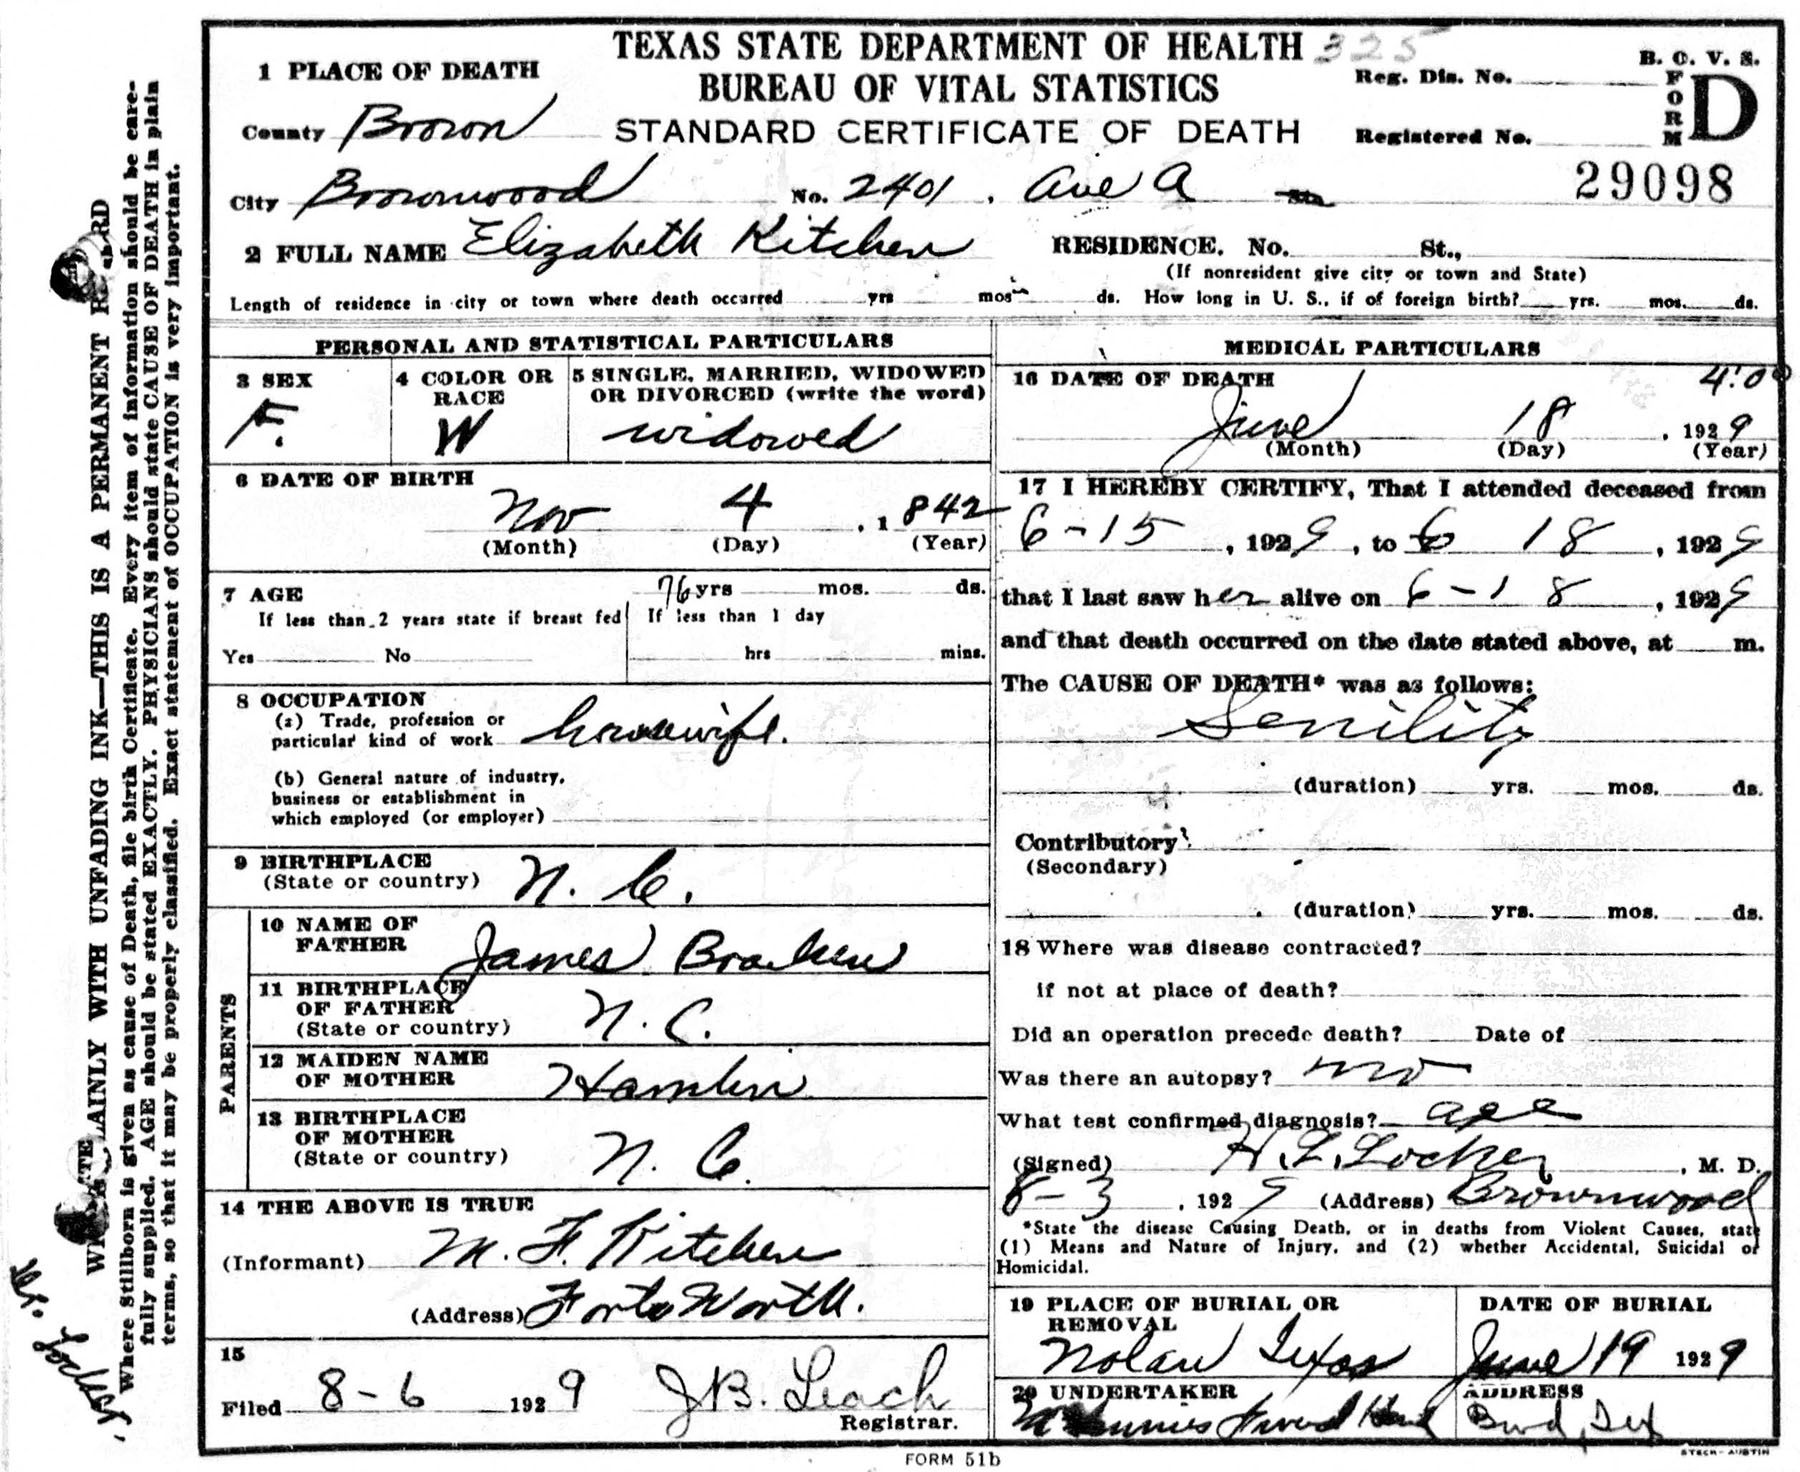 TEXAS STATE DEPARTMENT OF HEALTH 325
BUREAU OF VITAL STATISTICS
STANDARD CERTIFICATE OF DEATH
B. O. V. S.
FORM D
Reg. Dis. No.
Registered No.
29098
1 PLACE OF DEATH
County Brown
City Brownwood No. 2401. Ave A St.
2 FULL NAME Elizabeth Kitchen
RESIDENCE. No. St.,
(If nonresident give city or town and State)
Length of residence in city or town where death occurred yrs mos ds. How long in U. S., if of foreign birth? yrs. mos. ds.
PERSONAL AND STATISTICAL PARTICULARS
3 SEX
F.
4 COLOR OR RACE
W
5 SINGLE, MARRIED, WIDOWED
OR DIVORCED (write the word)
widowed
6 DATE OF BIRTH
Nov 4, 1842
(Month) (Day) (Year)
7 AGE 76 yrs mos. ds.
If less than 2 years state if breast fed
Yes No
If less than 1 day
hrs mins.
8 OCCUPATION
(a) Trade, profession or
particular kind of work housewife.
(b) General nature of industry,
business or establishment in
which employed (or employer)
9 BIRTHPLACE
(State or country) N. C.
PARENTS
10 NAME OF
FATHER James Bracken
11 BIRTHPLACE
OF FATHER
(State or country) N. C.
12 MAIDEN NAME
OF MOTHER Hamlin
13 BIRTHPLACE
OF MOTHER
(State or country) N. C.
14 THE ABOVE IS TRUE
(Informant) M. F. Kitchen
(Address) Forto Worth.
15
Filed 8-6 1929 J B. Leach
Registrar.
MEDICAL PARTICULARS
16 DATE OF DEATH 4:00
June 18, 1929
(Month) (Day) (Year)
17 I HEREBY CERTIFY, That I attended deceased from
6-15, 1929, to 6 18, 1929
that I last saw her alive on 6-18, 1929
and that death occurred on the date stated above, at m.
The CAUSE OF DEATH* was as follows:
Senility
(duration) yrs. mos. ds.
Contributory
(Secondary)
(duration) yrs. mos. ds.
18 Where was disease contracted?
if not at place of death?
Did an operation precede death? Date of
Was there an autopsy? no
What test confirmed diagnosis? age
(Signed) H. L. Locker, M. D.
8-3, 1929 (Address) Brownwood
*State the disease Causing Death, or in deaths from Violent Causes, state
(1) Means and Nature of Injury, and (2) whether Accidental, Suicidal or
Homicidal.
19 PLACE OF BURIAL OR
REMOVAL
Nolan Texas
DATE OF BURIAL
June 19 1929
20 UNDERTAKER
ADDRESS
Bwd, Tex
FORM 51b
STECK-AUSTIN
PLAINLY WITH UNFADING INK—THIS IS A PERMANENT
Where Stillborn is given as cause of Death, file birth Certificate. Every item of information should be care-
fully supplied. AGE should be stated EXACTLY. PHYSICIANS should state CAUSE OF DEATH in plain
terms, so that it may be properly classified. Exact statement of OCCUPATION is very important.